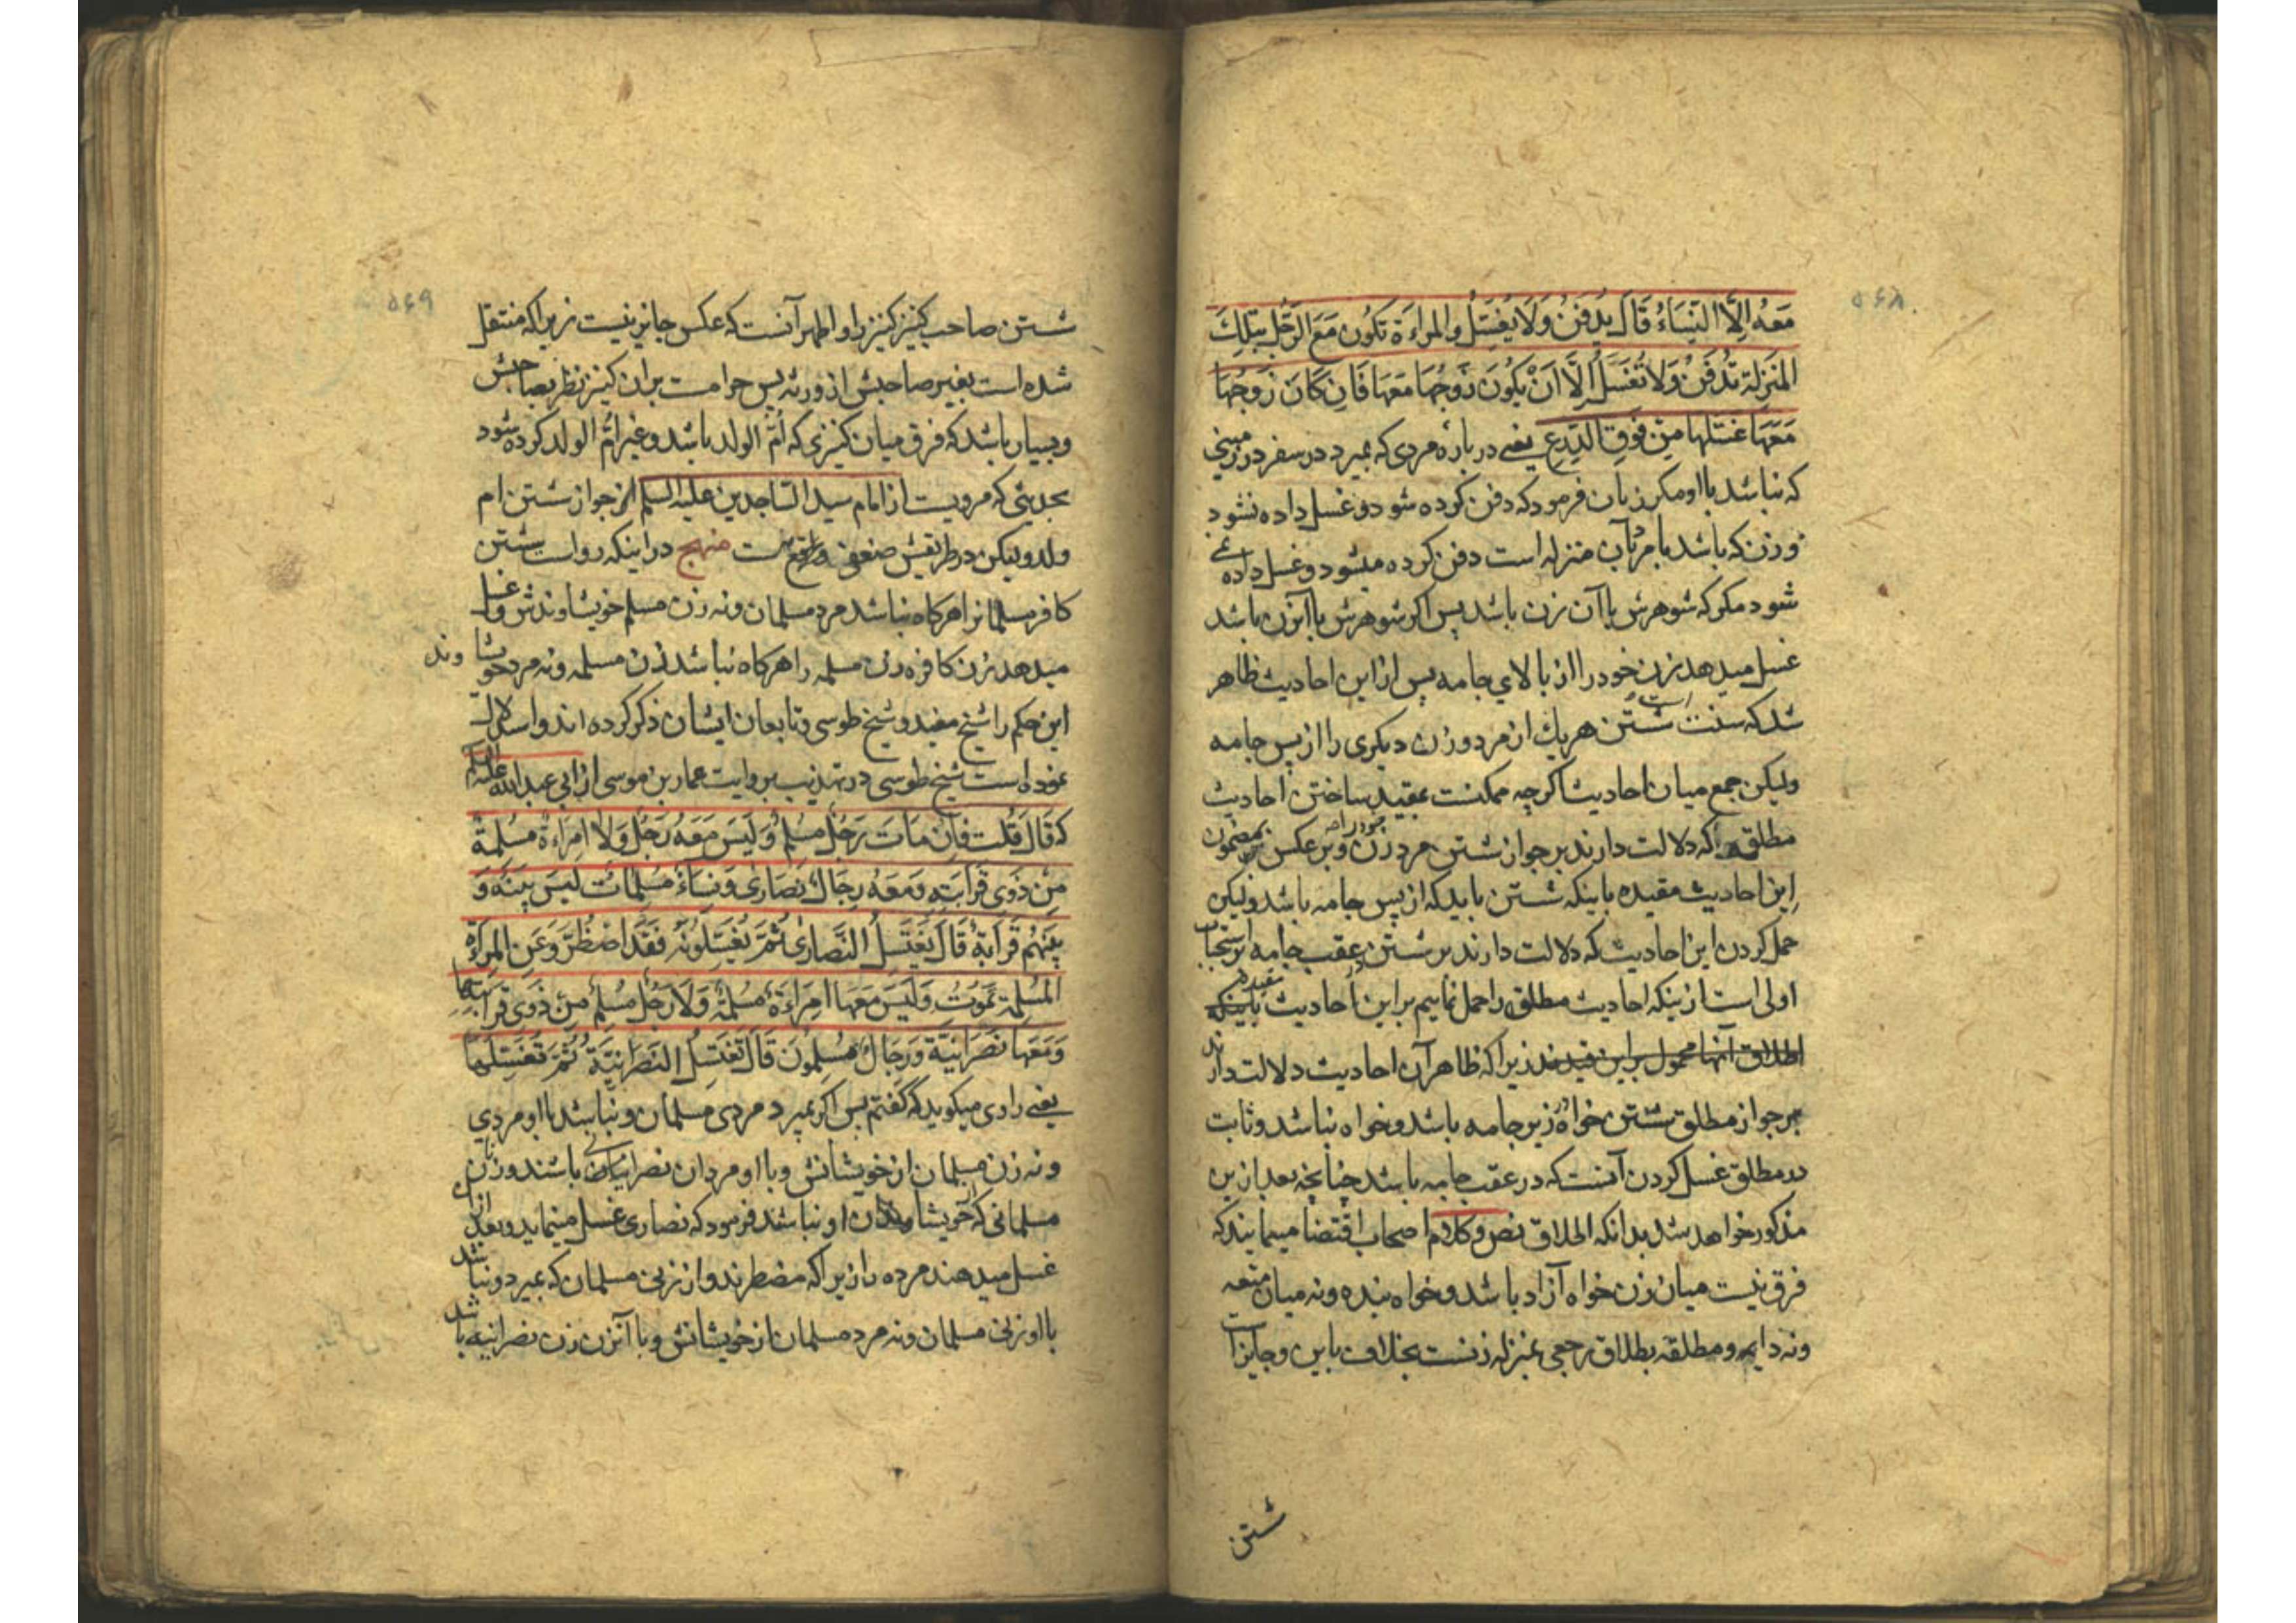 ۵۶۸
مَعَهُ اِلَّا النِّسَاءُ قَالَ يُدْفَنُ وَلَا يُغَسَّلُ والمراءَة تَكُونُ مَعَ الرَّجُلِ بِتِلكَ
المَنزِلَةِ تُدْفَنُ وَلَا تُغَسَّلُ اِلَّا اَنْ يَكُونَ زَوجُهَا مَعَهَا فَاِن كَانَ زَوجُهَا
مَعَهَا غَسَّلَها مِن فَوقِ الدِّرعِ یعنی در باره مردی که بمیرد در سفر در
که نباشد با او مکر زنان فرمود که دفن کرده شود و غسل داده نشود
و زن که باشد با مرد بآن منزله است دفن کرده میشود و غسل داده نمی
شود مکر که شوهرش با آن زن باشد پس اکر شوهرش با آنزن باشد
غسل میدهد زن خود را از بالای جامه پس از این احادیث ظاهر
شد که سنت است شستن هریك از مرد و زن دیکری را از پس جامه
ولیکن جمع میان احادیث اکرچه ممکنست بمقید ساختن احادیث
مطلقه که دلالت دارند بر جواز شستن مرد زن خود را و بر عکس بمضمون
این احادیث مقیده باینکه شستن باید که از پس جامه باشد ولیکن
حمل کردن این احادیث که دلالت دارند بر شستن در عقب جامه بر استحباب
اولی است از اینکه احادیث مطلق را حمل نماییم بر این احادیث مقیده باینکه
اطلاق آنها محمول بر این قیدند زیرا که ظاهر آن احادیث دلالت دارند
بر جواز مطلق شستن خواه در زیر جامه باشد و خواه نباشد و ثابت
در مطلق غسل کردن آنست که در عقب جامه باشد چنانچه بعد از این
مذکور خواهد شد بدانکه اطلاق نص و کلام اصحاب اقتضا مینمایند که
فرق نیست میان زن خواه آزاد باشد و خواه بنده و نه میان متعه
و نه دایمه و مطلقه بطلاق رجعی بمنزله زنست بخلاف باین و جایز است
شستن
۵۶۹
شستن صاحب کنیز کنیز را و اظهر آنست که عکس جایز نیست زیرا که منتقل
شده است بغیر صاحبش از ورثه پس حرامست بران کنیز نظر بصاحبش
و بسیار باشد که فرق میان کنیزی که اُمّ الولد باشد و غیر امّ الولد کرده شود
بحدیثی که مرویست از امام سید الساجدین علیه السلم از جواز شستن ام
ولد ولیکن در طریقش ضعفی واقع است منهج در اینکه رواست شستن
کافر مسلمانرا هرکاه نباشد مرد مسلمان و نه زن مسلم خویشاوندش و غسل
میدهد زن کافره زن مسلمه را هرکاه نباشد زن مسلمه و نه مرد خویشاوند
این حکم را شیخ مفید و شیخ طوسی و تابعان ایشان ذکر کرده اند و استدلال
نموده است شیخ طوسی در تهذیب بروایت عمار بن موسی از ابی عبد الله علیه السلم
که قَالَ قُلت فَاِن مَاتَ رَجُلٌ مُسلِمٌ وَلَيسَ مَعَهُ رَجُلٌ وَلَا امرَاءَةٌ مُسلِمةٌ
مِن ذَوِى قَرَابَتِهِ وَمَعَهُ رِجَالٌ نَصَارى وَنِسَاءٌ مُسلِمَاتٌ لَيسَ بَينَهُ وَ
بَينَهُم قَرَابَةٌ قَالَ يَغتَسِلُ النَّصَارىٰ ثُمَّ يُغَسِّلُونَهُ فَقَد اضطُرَّ وَعَنِ المَراَةِ
المُسلِمَةِ تَمُوتُ وَلَيسَ مَعَهَا امرَاءَةٌ مُسلِمَةٌ وَلَا رَجُلٌ مُسلِمٌ مِن ذَوِى قَرَابَتِهَا
وَمَعَهَا نَصرَانِيَّةٌ وَرِجَالٌ مُسلِمُونَ قَالَ تَغتَسِلُ النَصرَانِيَّةُ ثُمَّ تُغَسِّلُهَا
یعنی راوی میکوید که کفتم پس اکر بمیرد مردی مسلمان و نباشد با او مردی
و نه زن مسلمان از خویشانش و با او مردان نصرانی باشند و زنان
مسلمانی که خویشاوندان او نباشد فرمود که نصاری غسل مینماید و بعد از ان
غسل میدهند مرده را زیرا که مضطرند و از زنی مسلمان که بمیرد و نباشد
با او زنی مسلمان و نه مرد مسلمان از خویشانش و با آنزن زن نصرانیه باشد